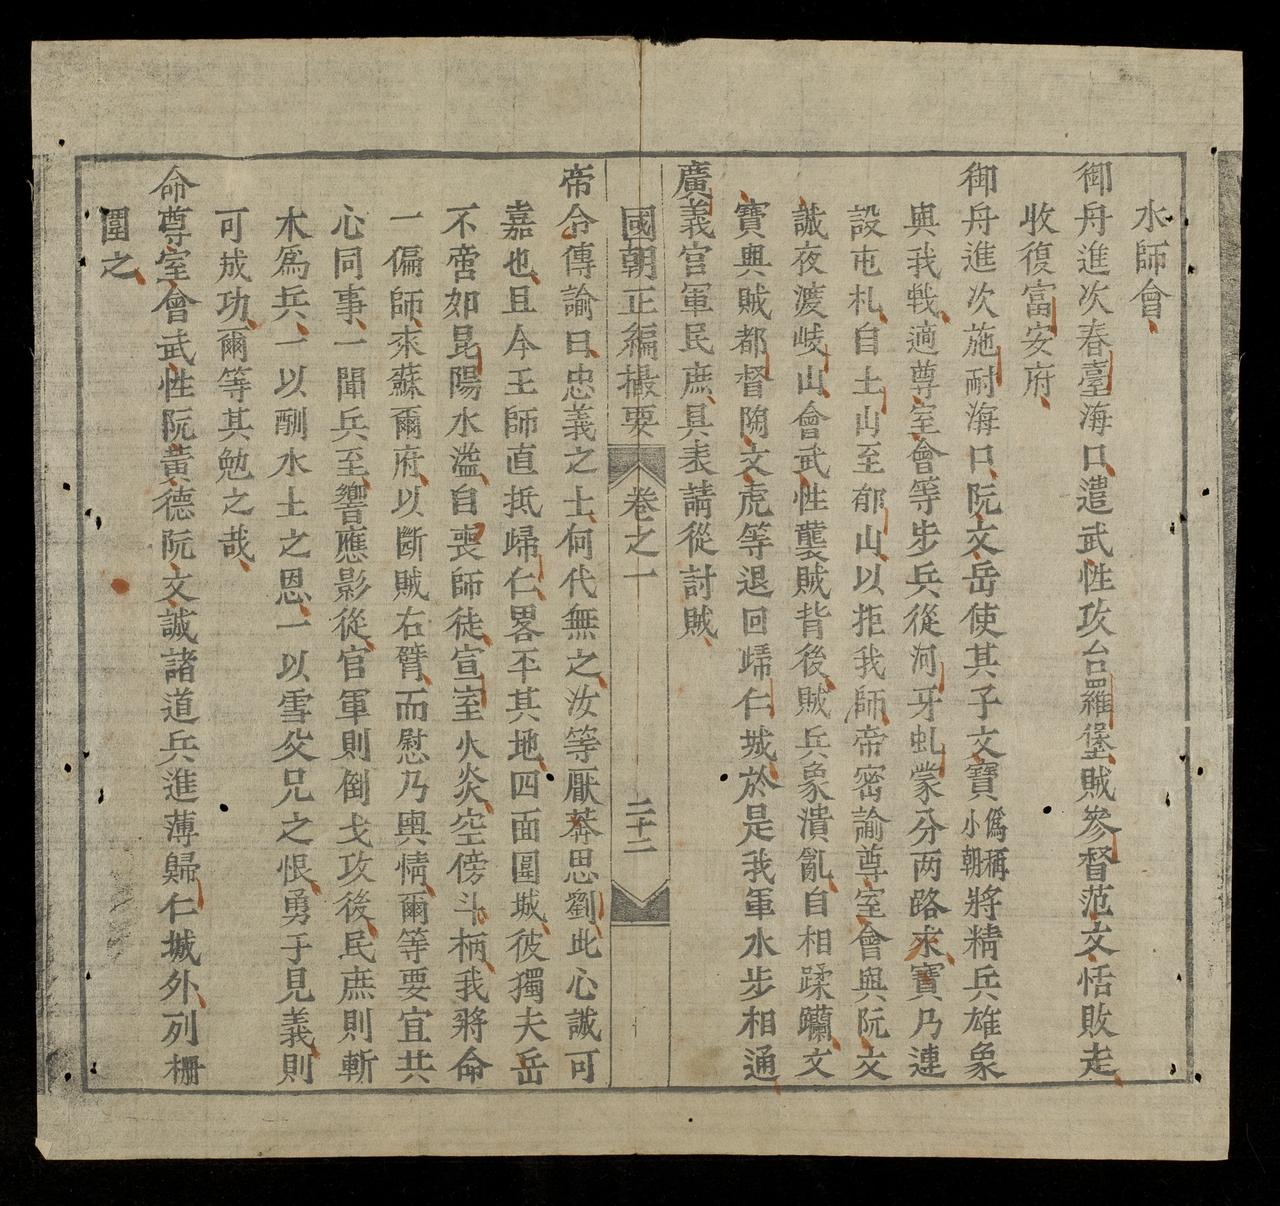 水師會
御舟進次春臺海口遣武性攻台羅堡賊參督范文恬敗走
收復富安府
御舟進次施耐海口阮文岳使其子文寶偽稱小朝將精兵雄象
與我戰適尊室會等步兵從河牙虬蒙分兩路來寶乃連
設屯札自土山至郁山以拒我師帝密諭尊室會與阮文
誠夜渡岐山會武性襲賊背後賊兵象潰亂自相蹂躪文
寶與賊都督陶文虎等退回歸仁城於是我軍水步相通
廣義官軍民庶具表請從討賊
國朝正編撮要 卷之一 二十二
帝令傳諭曰忠義之士何代無之汝等厭莽思劉此心誠可
嘉也且今王師直抵歸仁畧平其地四面圍城彼獨夫岳
不啻如昆陽水溢自喪師徒宣室火炎空傍斗柄我將命
一偏師來蘇爾府以斷賊右臂而慰乃輿情爾等要宜共
心同事一聞兵至響應影從官軍則倒戈攻後民庶則斬
木為兵一以酬水土之恩一以雪父兄之恨勇于見義則
可成功爾等其勉之哉
命尊室會武性阮黄德阮文誠諸道兵進薄歸仁城外列柵
圍之